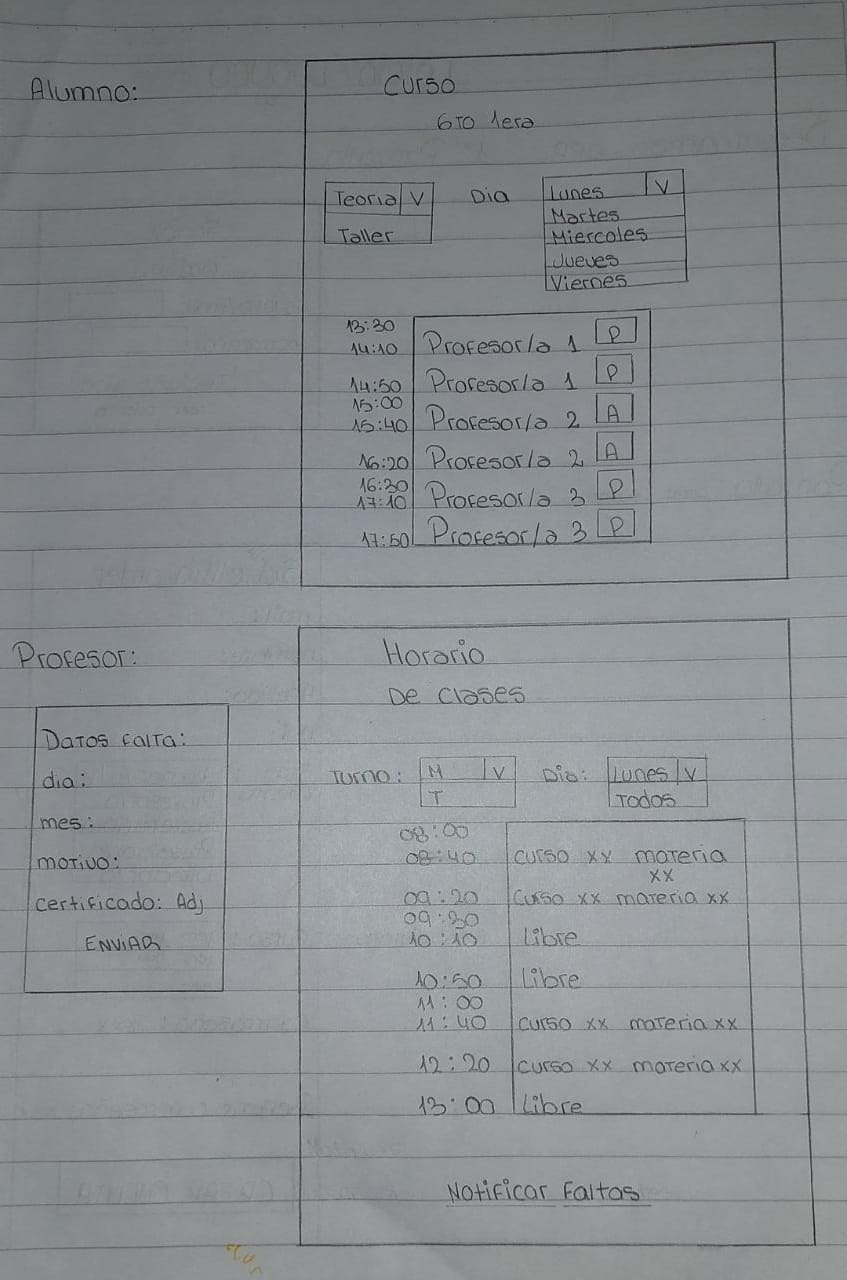 Alumno:
Curso
6TO 1era
Teoria V
Taller
Dia
Lunes V
Martes
Miercoles
Jueves
Viernes
13:30
14:10 Profesor/a 1 P
14:50 Profesor/a 1 P
15:00
15:40 Profesor/a 2 A
16:20 Profesor/a 2 A
16:30
17:10 Profesor/a 3 P
17:50 Profesor/a 3 P
Profesor:
Datos falta:
dia:
mes:
motivo:
certificado: Adj
ENVIAR
Horario
De clases
Turno: M V
T
Dia: Lunes V
Todos
08:00
08:40 curso xx materia
xx
09:20 Curso xx materia xx
09:30
10:10 Libre
10:50 Libre
11:00
11:40 curso xx materia xx
12:20 curso xx materia xx
13:00 Libre
Notificar Faltas